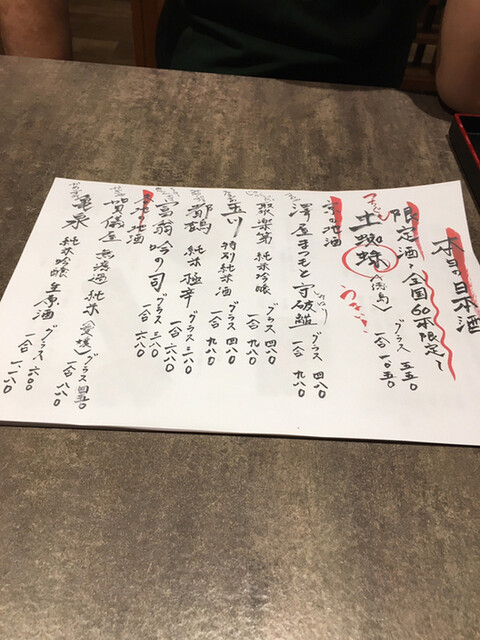 本日の日本酒
限定酒〜全国60本限定〜
つちぐも
土蜘蛛（徳島） グラス 五五〇
一合 一〇五〇
うまい
京の地酒
澤屋まつもと 守破離 グラス 四八〇
一合 九八〇
聚楽第 純米吟醸 グラス 四八〇
一合 九八〇
玉川 特別純米酒 グラス 四八〇
一合 九八〇
都鶴 純米極辛 グラス 三八〇
一合 六八〇
富翁 吟の司 グラス 三八〇
一合 六八〇
地酒
賀儀屋 無濾過 純米（愛媛） グラス 四五〇
一合 八八〇
亀泉 純米吟醸生原酒 グラス 六〇〇
一合 一一八〇